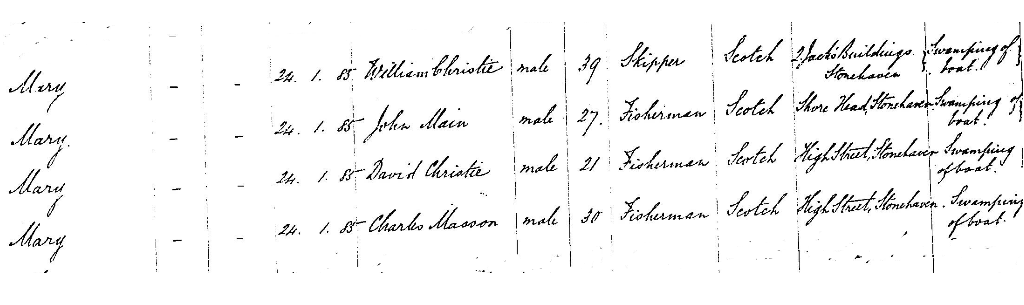 Mary - - 24. 1. 85 William Christie male 39 Skipper Scotch 2 Jack's Buildings Stonehaven Swamping of boat.
Mary. - - 24. 1. 85 John Main male 27. Fisherman Scotch Shore Head, Stonehaven Swamping of boat.
Mary - - 24. 1. 85 David Christie male 21 Fisherman Scotch High Street, Stonehaven Swamping of boat.
Mary - - 24. 1. 85 Charles Masson male 30 Fisherman Scotch High Street, Stonehaven. Swamping of boat.